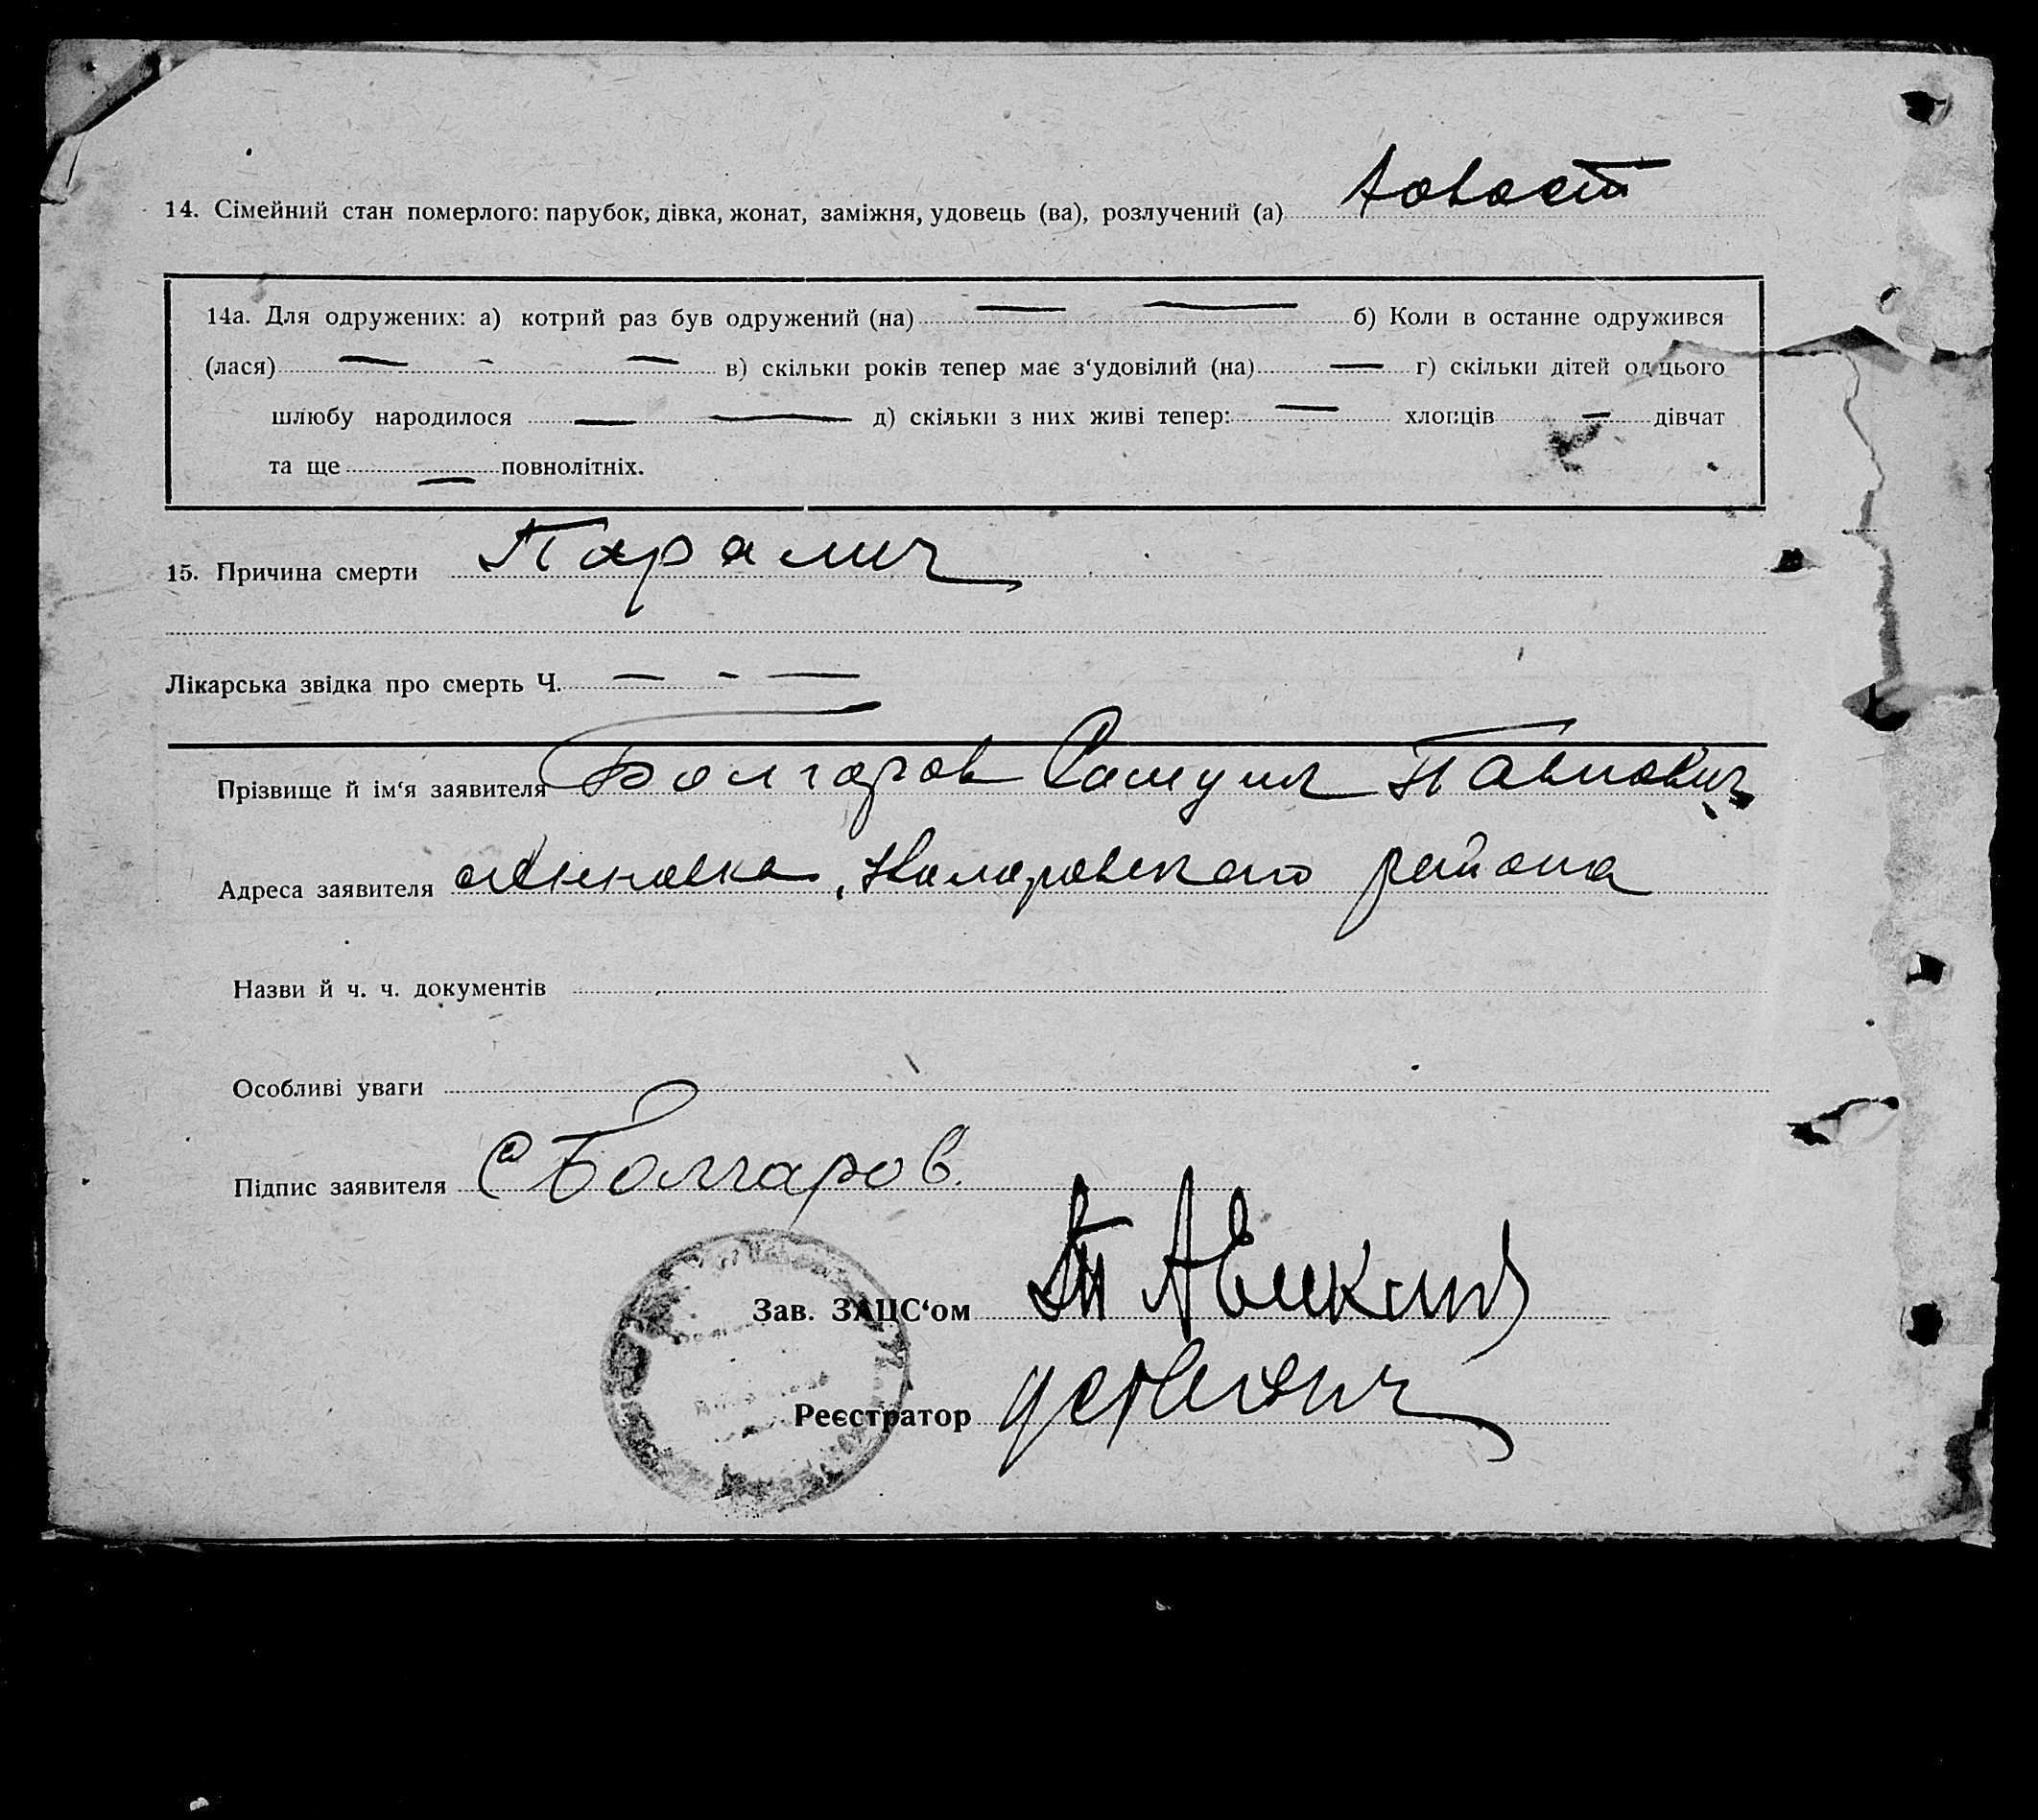 14. Сімейний стан померлого: парубок, дівка, жонат, заміжня, удовець (ва), розлучений (а)
14а. Для одружених: а) котрий раз був одружений (на) — — б) Коли в останнє одружився
(лася) — - — в) скільки років тепер має з‘удовілий (на) — г) скільки дітей од цього
шлюбу народилося — — д) скільки з них живі тепер: — хлопців — дівчат
та ще — повнолітніх.
15. Причина смерти Паралич
Лікарська звідка про смерть Ч. — - —
Прізвище й ім‘я заявителя Болгаров Самуил Павлович
Адреса заявителя Анновка, района
Назви й ч. ч. документів
Особливі уваги
Підпис заявителя С Болгаров.
Зав. ЗАЦС‘ом
Реєстратор